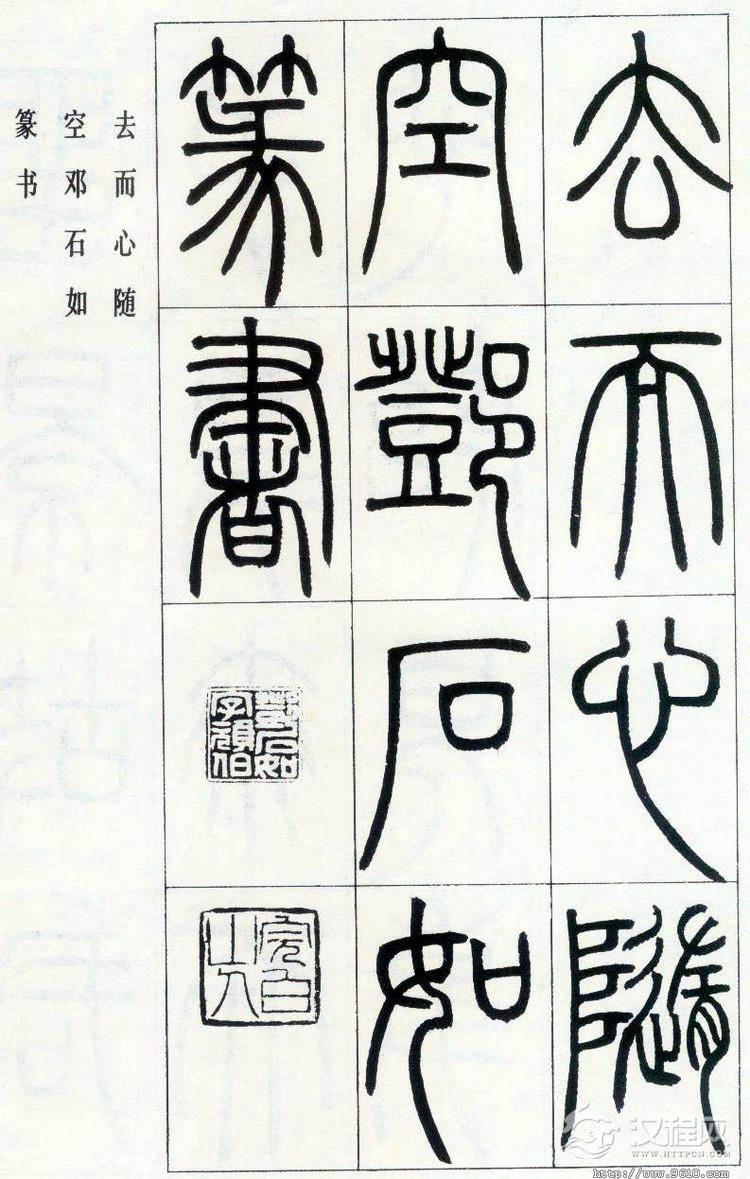 去而心隨
空鄧石如
篆書
鄧石如
字頑伯
完白
山人
去而心随
空邓石如
篆书
汉程网
WWW.HTTPCN.COM
http://www.9610.com